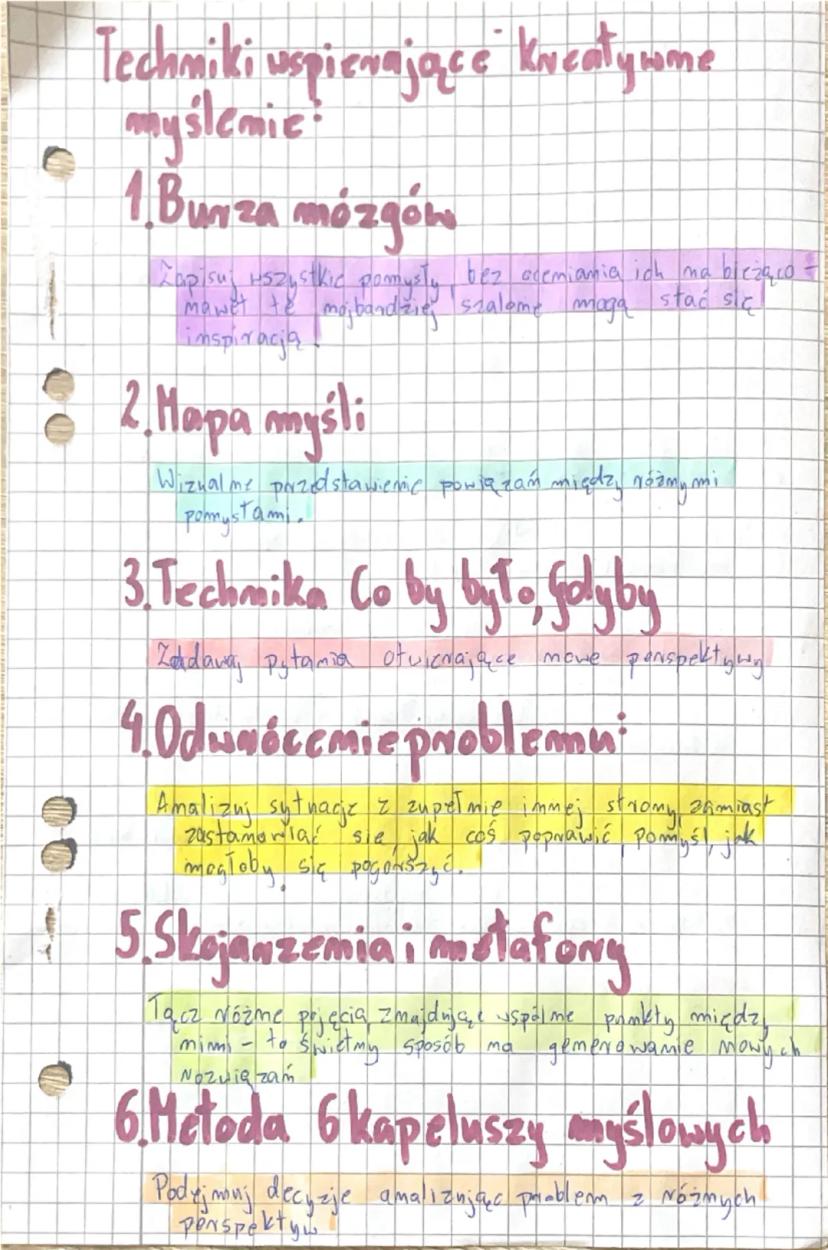 Techniki wspierające kreatywne
myślenie:
1. Burza mózgów
Zapisuj wszystkie pomysły, bez oceniania ich na bieżąco -
nawet te najbardziej szalone mogą stać się
inspiracją.
2. Mapa myśli
Wizualne przedstawienie powiązań między różnymi
pomysłami.
3. Technika Co by było, Gdyby
Zadawaj pytania otwierające nowe perspektywy
4. Odwrócenie problemu:
Analizuj sytuacje z zupełnie innej strony, zamiast
zastanawiać się, jak coś poprawić, pomyśl, jak
mogłoby się pogorszyć.
5. Skojarzenia i metafory
Łącz różne pojęcia, znajdując wspólne punkty między
nimi - to świetny sposób na generowanie nowych
rozwiązań
6. Metoda 6 kapeluszy myślowych
Podejmuj decyzje analizując problem z różnych
perspektyw